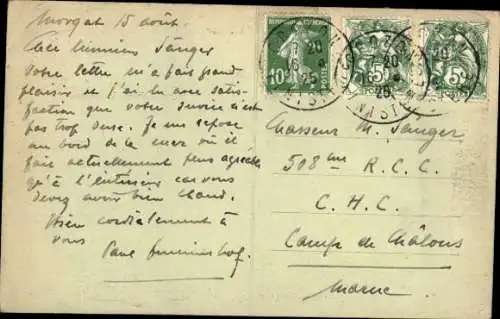 Morgat 15 août.
Cher Monsieur Sänger
Votre lettre m'a fait grand
plaisir et j'ai vu avec satis-
faction que votre service n'est
pas trop dur. Je me repose
au bord de la mer où il
fait actuellement plus agréable
qu'à l'intérieur car vous
devez avoir bien chaud.
Bien cordialement à
vous
Paul
10c
5c
POSTES
5c
20
25
20
25
20
FINISTERE
Chasseur M. Sänger
508ème R.C.C.
C.H.C.
Camp de Châlons
Marne